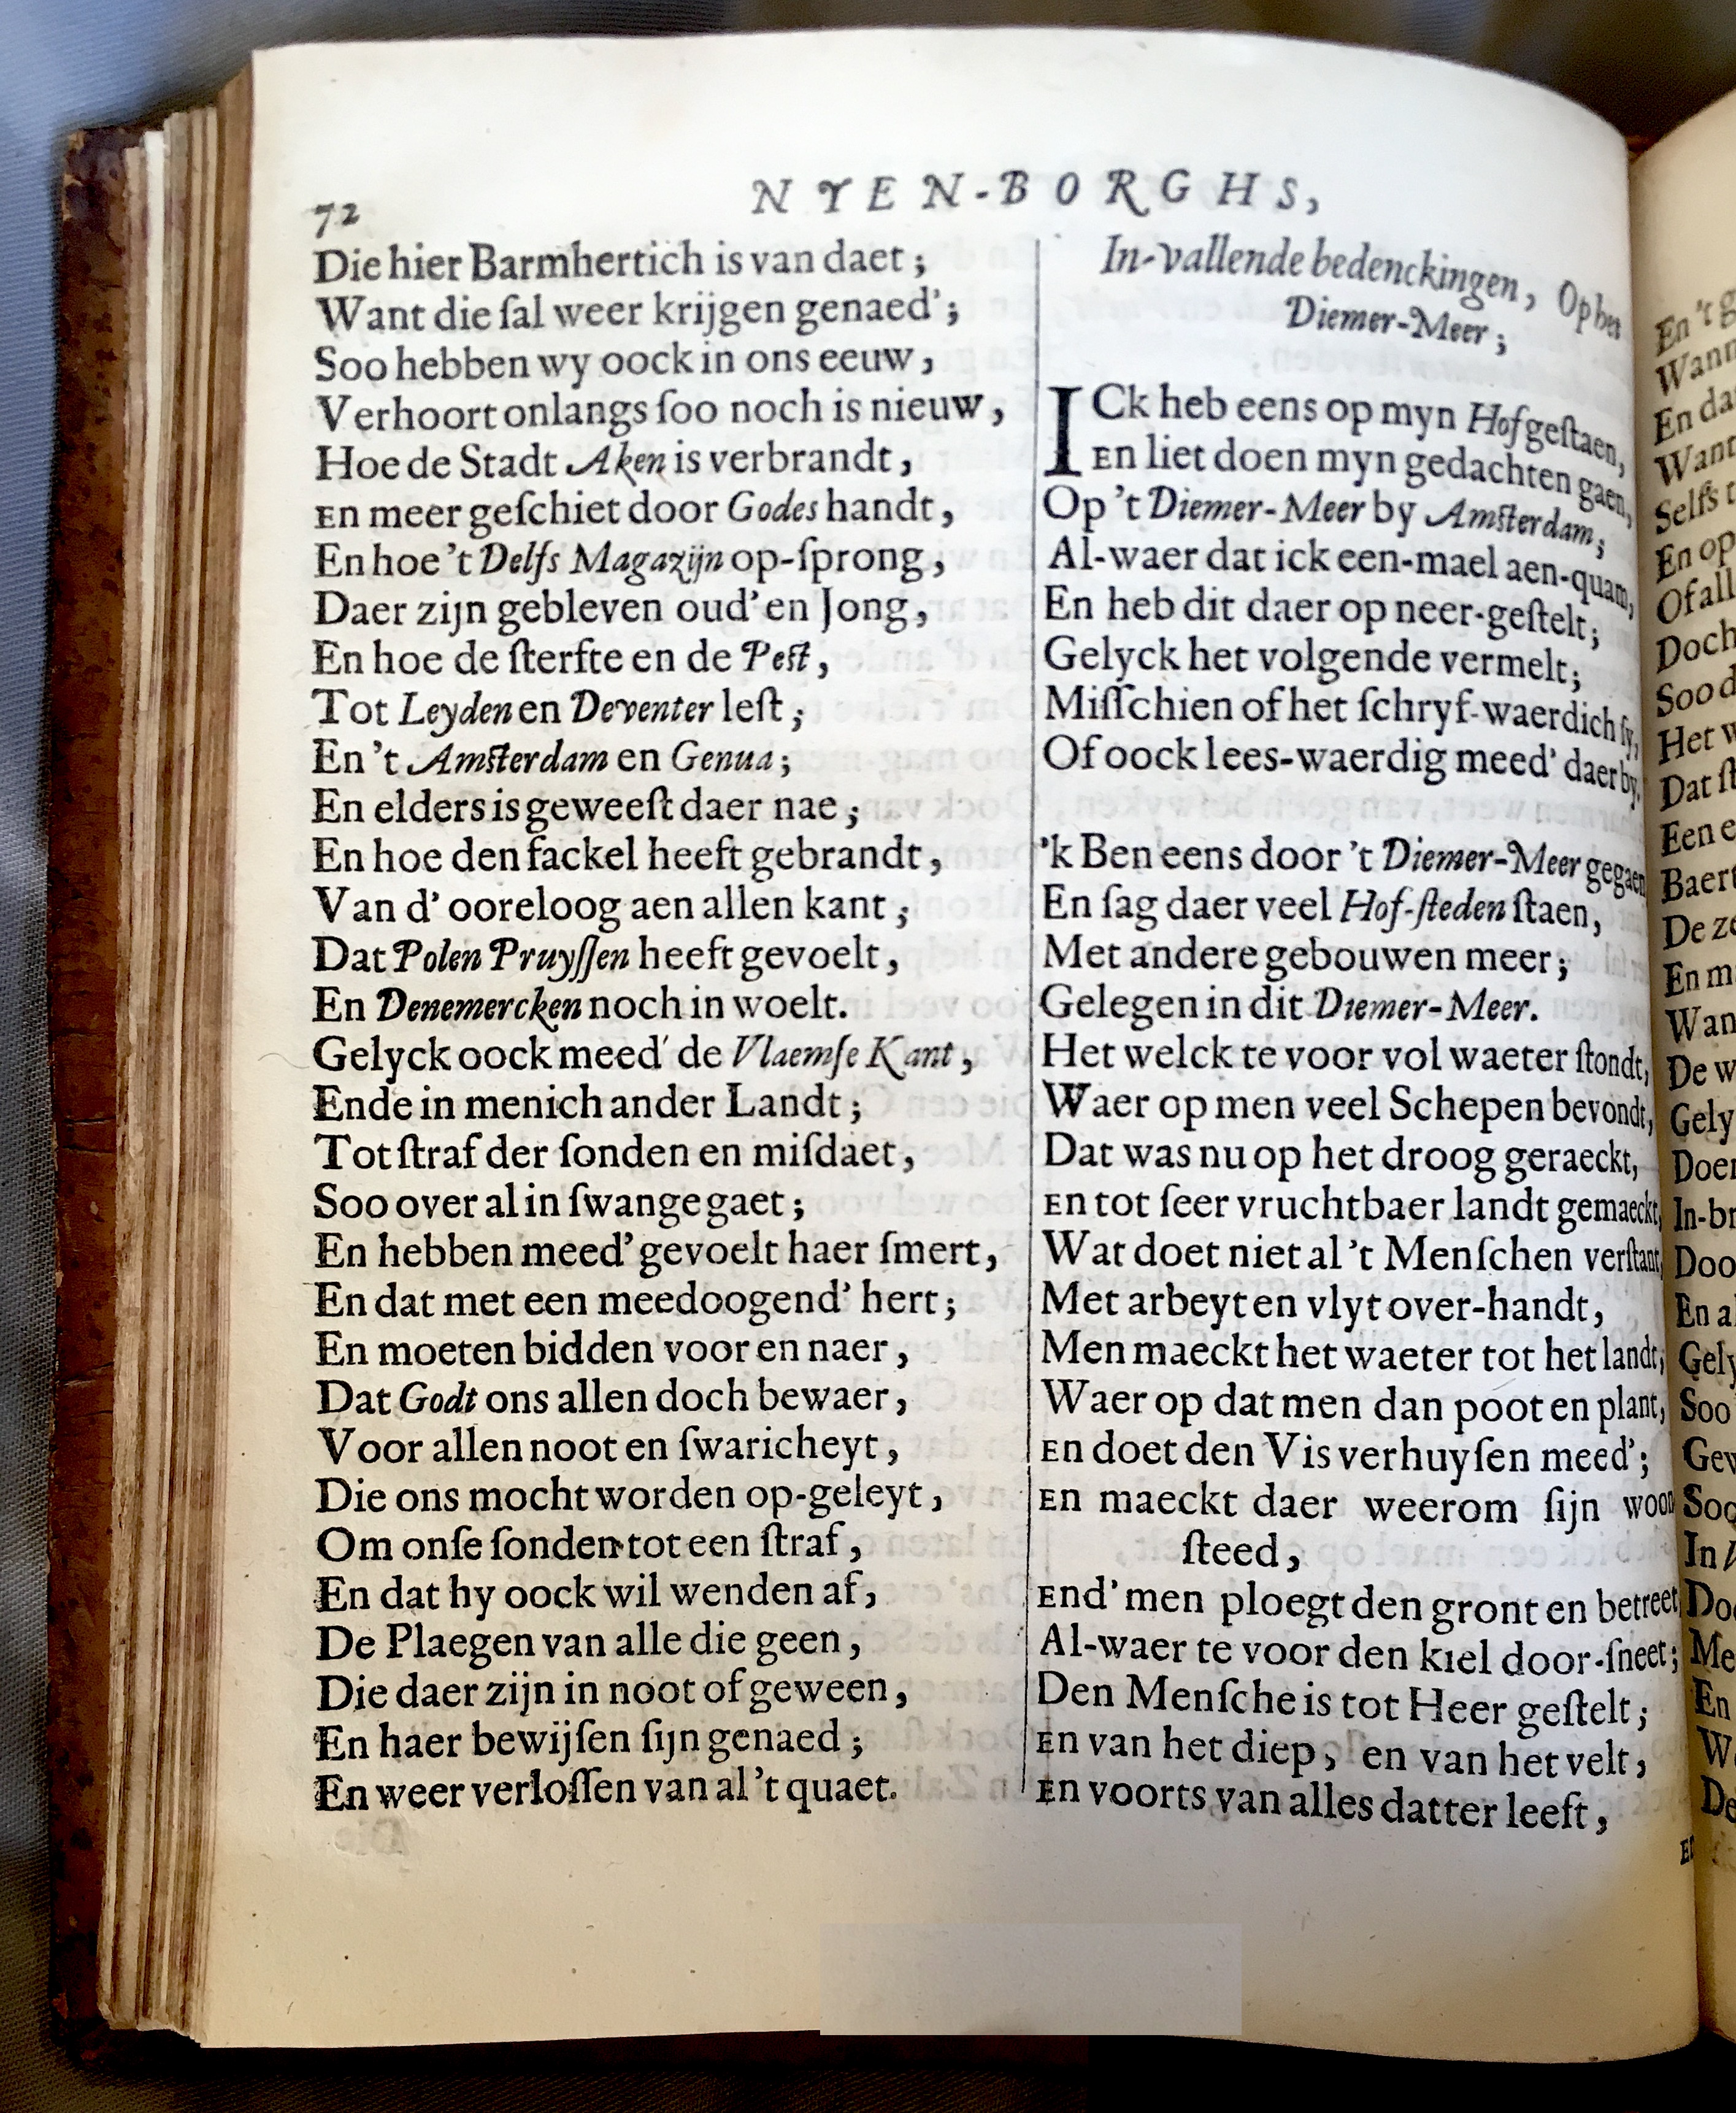 72
NYEN-BORGHS,
Die hier Barmhertich is van daet ;
Want die ſal weer krijgen genaed' ;
Soo hebben wy oock in ons eeuw ,
Verhoort onlangs ſoo noch is nieuw ,
Hoe de Stadt Aken is verbrandt ,
En meer geſchiet door Godes handt ,
En hoe 't Delfs Magazijn op-ſprong ,
Daer zijn gebleven oud' en Jong ,
En hoe de ſterfte en de Peſt ,
Tot Leyden en Deventer leſt ;
En 't Amſterdam en Genua ;
En elders is geweeſt daer nae ;
En hoe den fackel heeft gebrandt ,
Van d' ooreloog aen allen kant ;
Dat Polen Pruyſſen heeft gevoelt ,
En Denemercken noch in woelt.
Gelyck oock meed' de Vlaemſe Kant ,
Ende in menich ander Landt ;
Tot ſtraf der ſonden en miſdaet ,
Soo over al in ſwange gaet ;
En hebben meed' gevoelt haer ſmert ,
En dat met een meedoogend' hert ;
En moeten bidden voor en naer ,
Dat Godt ons allen doch bewaer ,
Voor allen noot en ſwaricheyt ,
Die ons mocht worden op-geleyt ,
Om onſe ſonden tot een ſtraf ,
En dat hy oock wil wenden af ,
De Plaegen van alle die geen ,
Die daer zijn in noot of geween ,
En haer bewijſen ſijn genaed ;
En weer verloſſen van al 't quaet.
In-vallende bedenckingen, Op het
Diemer-Meer ;
ICk heb eens op myn Hof geſtaen,
En liet doen myn gedachten gaen,
Op 't Diemer-Meer by Amſterdam;
Al-waer dat ick een-mael aen-quam,
En heb dit daer op neer-geſtelt;
Gelyck het volgende vermelt;
Miſſchien of het ſchryf-waerdich ſy,
Of oock lees-waerdig meed' daer by.
'k Ben eens door 't Diemer-Meer gegaen
En ſag daer veel Hof-ſteden ſtaen,
Met andere gebouwen meer;
Gelegen in dit Diemer-Meer.
Het welck te voor vol waeter ſtondt,
Waer op men veel Schepen bevondt,
Dat was nu op het droog geraeckt,
En tot ſeer vruchtbaer landt gemaeckt,
Wat doet niet al 't Menſchen verſtant,
Met arbeyt en vlyt over-handt,
Men maeckt het waeter tot het landt,
Waer op dat men dan poot en plant,
En doet den Vis verhuyſen meed';
En maeckt daer weerom ſijn woon
ſteed,
End' men ploegt den gront en betreet,
Al-waer te voor den kiel door-ſneet;
Den Menſche is tot Heer geſtelt;
En van het diep, en van het velt,
En voorts van alles datter leeft,
En 't
En
Want
En op
Doch
Soo
Het
Een
De
En
De
In
Soo
In
En
De